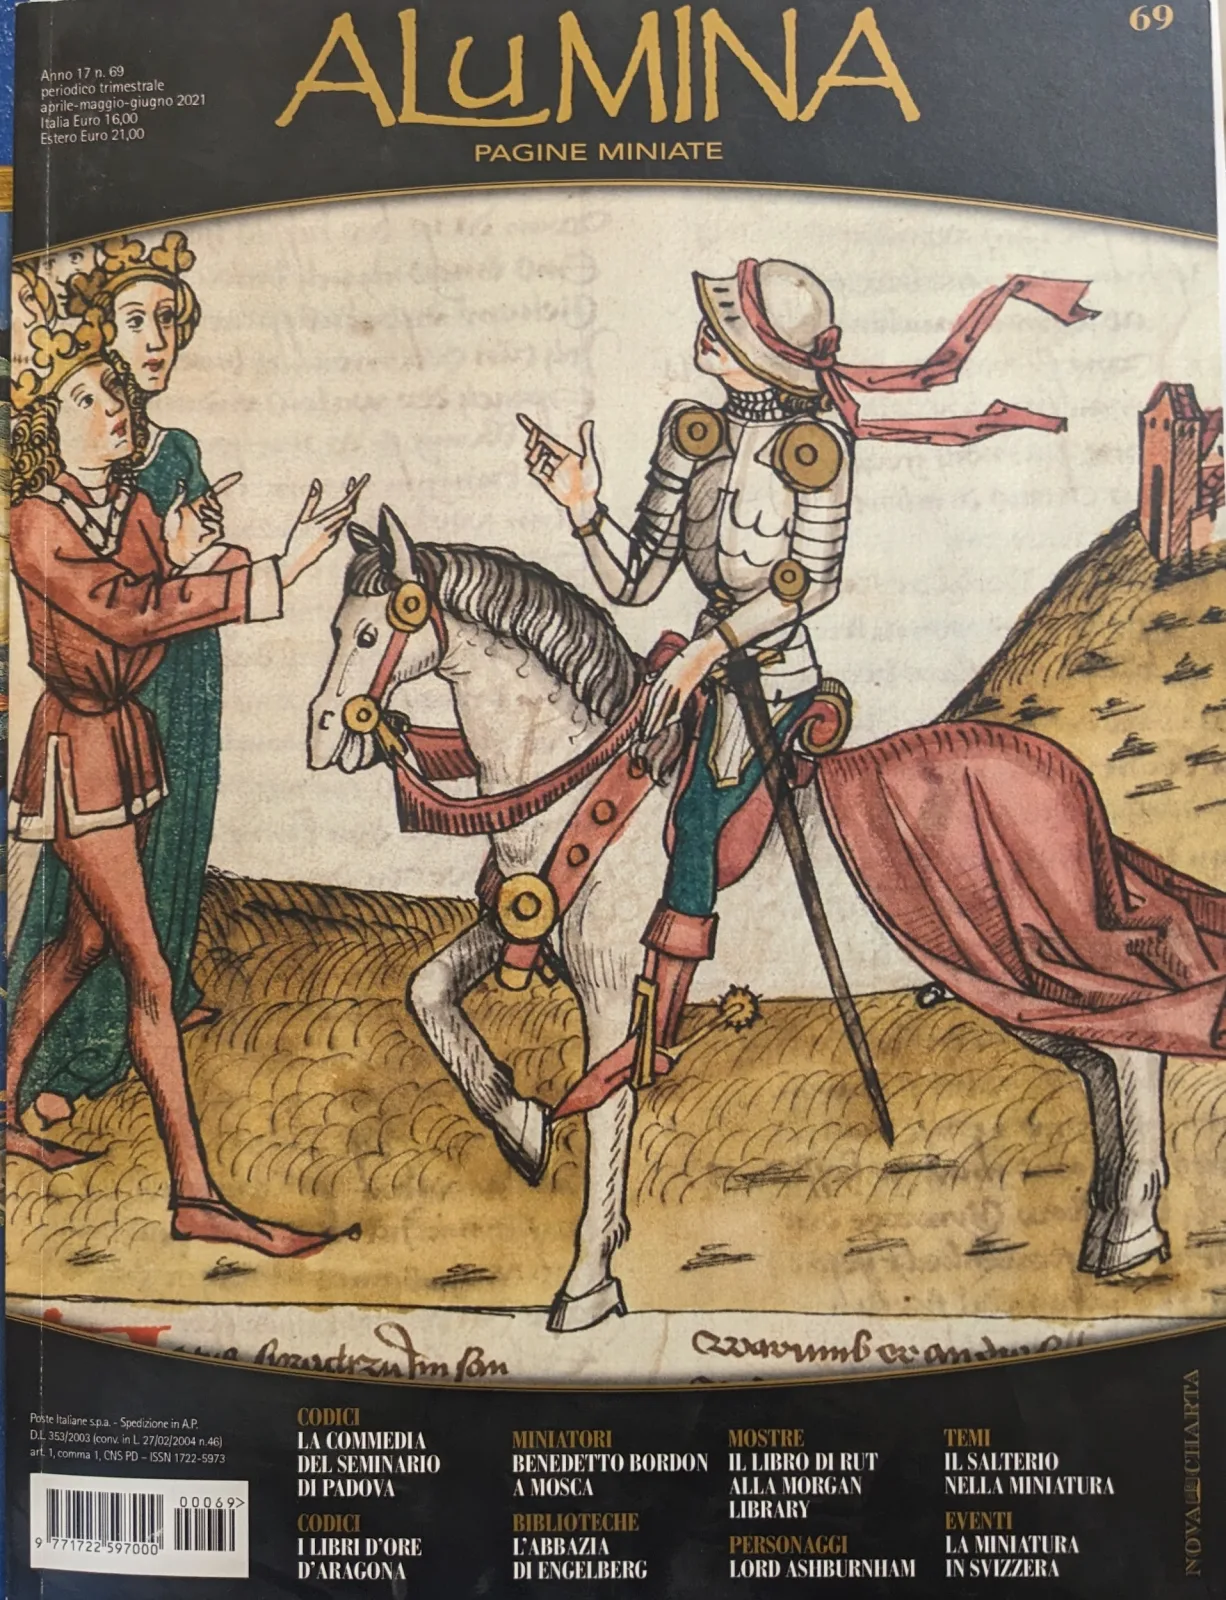 69
ALuMINA
PAGINE MINIATE
Anno 17 n. 69
periodico trimestrale
aprile-maggio-giugno 2021
Italia Euro 16,00
Estero Euro 21,00
Poste Italiane s.p.a. - Spedizione in A.P.
D.L. 353/2003 (conv. in L. 27/02/2004 n.46)
art. 1, comma 1, CNS PD – ISSN 1722-5973
00069>
9 771722 597000
CODICI
LA COMMEDIA
DEL SEMINARIO
DI PADOVA
CODICI
I LIBRI D'ORE
D'ARAGONA
MINIATORI
BENEDETTO BORDON
A MOSCA
BIBLIOTECHE
L'ABBAZIA
DI ENGELBERG
MOSTRE
IL LIBRO DI RUT
ALLA MORGAN
LIBRARY
PERSONAGGI
LORD ASHBURNHAM
TEMI
IL SALTERIO
NELLA MINIATURA
EVENTI
LA MINIATURA
IN SVIZZERA
NOVACHARTA